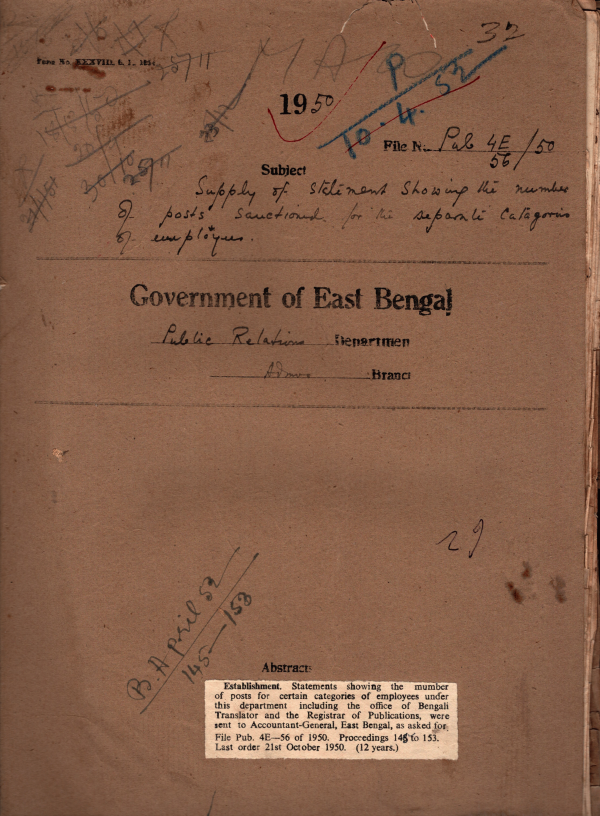 32
Form No. XXXVIII.
25/11
1950
P
10.4.52
File No. Pub 4E/56/50
25/11
Subject
Supply of statement showing the number
of posts sanctioned for the separate categories
of employees.
Government of East Bengal
Public Relations Departmen
Branc
29
B. April 52
145—153
Abstract
Establishment. Statements showing the number
of posts for certain categories of employees under
this department including the office of Bengali
Translator and the Registrar of Publications, were
sent to Accountant-General, East Bengal, as asked for
File Pub. 4E—56 of 1950. Proceedings 145 to 153.
Last order 21st October 1950. (12 years.)